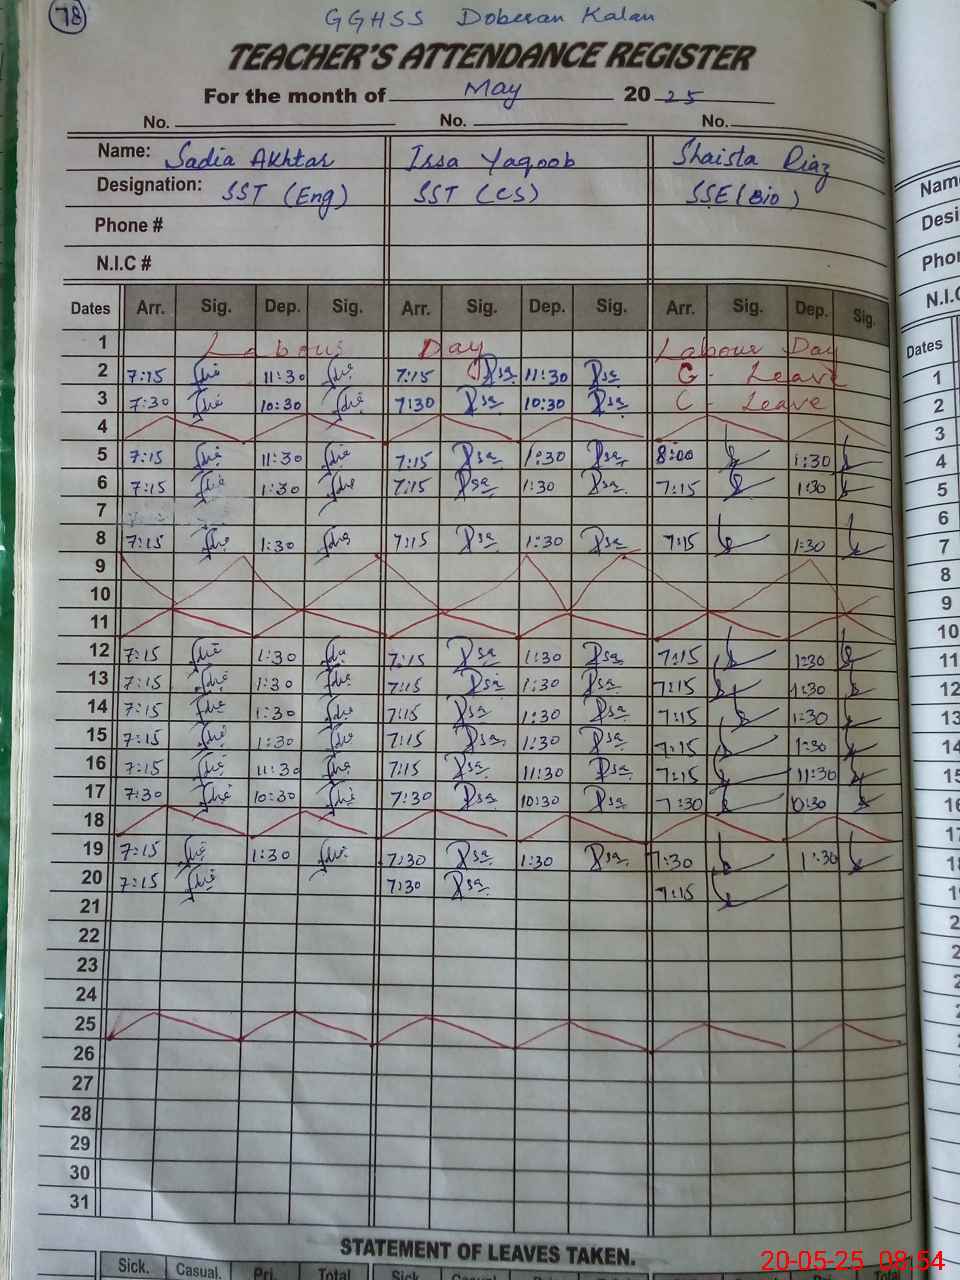 78
GGHSS Doberan Kalan
TEACHER'S ATTENDANCE REGISTER
For the month of May 2025
No. No. No.
Name: Sadia Akhtar Issa Yaqoob Shaista Riaz
Designation: SST (Eng) SST (CS) SSE (Bio)
Phone #
N.I.C #
Dates Arr. Sig. Dep. Sig. Arr. Sig. Dep. Sig. Arr. Sig. Dep. Sig.
1 Labour Day Labour Day
2 7:15 11:30 7:15 11:30 C - Leave
3 7:30 10:30 7:30 10:30 C - Leave
4
5 7:15 11:30 7:15 1:30 8:00 1:30
6 7:15 1:30 7:15 1:30 7:15 1:30
7
8 7:15 1:30 7:15 1:30 7:15 1:30
9
10
11
12 7:15 1:30 7:15 1:30 7:15 1:30
13 7:15 1:30 7:15 1:30 7:15 1:30
14 7:15 1:30 7:15 1:30 7:15 1:30
15 7:15 1:30 7:15 1:30 7:15 1:30
16 7:15 11:30 7:15 11:30 7:15 11:30
17 7:30 10:30 7:30 10:30 7:30 10:30
18
19 7:15 1:30 7:30 1:30 7:30 1:30
20 7:15 7:30 7:15
21
22
23
24
25
26
27
28
29
30
31
STATEMENT OF LEAVES TAKEN.
Sick. Casual. Pri. Total Sick.
Name
Desi
Phon
N.I.C
Dates
1
2
3
4
5
6
7
8
9
10
11
12
13
14
15
16
17
18
20-05-25 08:54